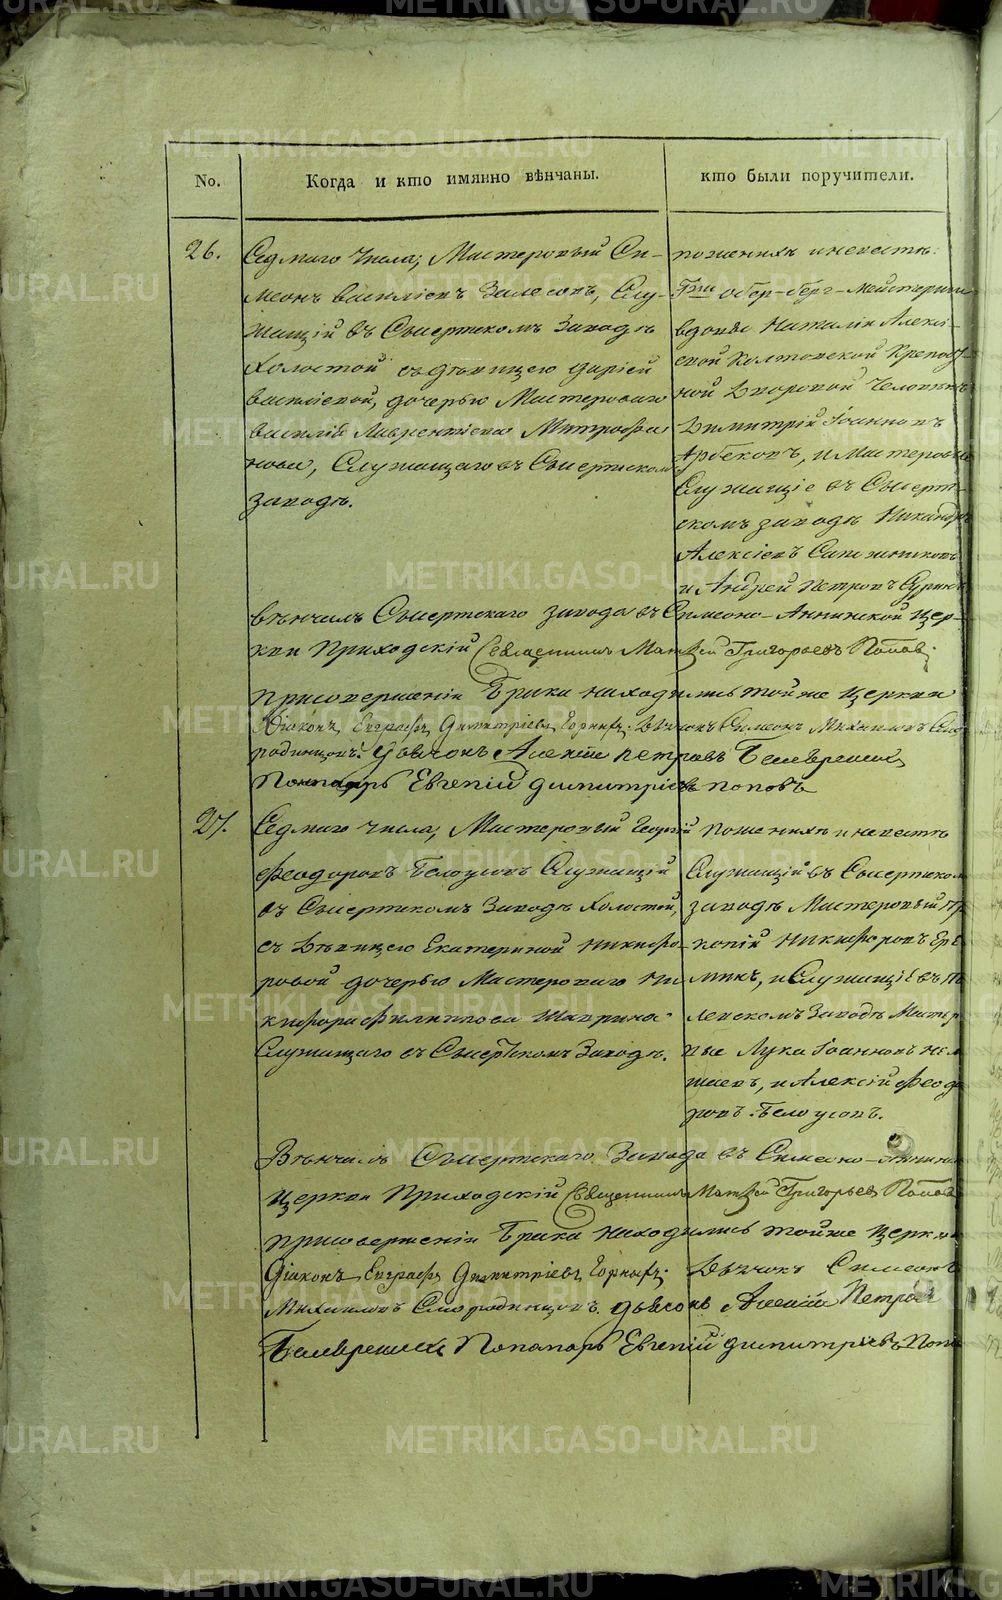 No.
Когда и кто имянно вѣнчаны.
кто были поручители.
26.
Седмаго числа; Мастеровый Си-
меонъ Василіевъ Залесовъ, Слу-
жащій въ Сысертскомъ Заводѣ
Холостой съ дѣвицею Даріей
Василіевой, дочерью Мастероваго
Василія Лаврентіева Митрофа-
нова, Служащаго въ Сысертскомъ
Заводѣ.
по женихѣ и невестѣ:
Гжи обер-берг-мейстерши
вдовы Наталіи Алексі-
евой Колтовской Крепост-
ной Дворовой Человѣкъ
Димитрій Іоанновъ
Арбековъ, и Мастеровые
Служащіе въ Сысерт-
скомъ заводѣ Никандръ
Алексіевъ
и Андрей Петровъ
вѣнчалъ Сысертскаго завода въ Симеоно-Аннинской Цер-
кви Приходскій Священникъ Матѳей Григорьевъ Поповъ.
при совершеніи Брака находились тойже Церкви
Діаконъ Евграфъ Димитріевъ Горныхъ. Дьячокъ Симеонъ Михаиловъ Смо-
родинцовъ. Дьячокъ Алексій Петровъ
Понамарь Евгеній Димитріевъ Поповъ
27.
Седмаго числа, Мастеровый Георгій
Феодоровъ Белоусовъ Служащій
въ Сысертскомъ Заводѣ Холостой,
съ Дѣвицею Екатериной Никифо-
ровой дочерью Мастероваго Ни
кифора Филиппова Шаврина
Служащаго въ Сысертскомъ Заводѣ.
По женихѣ и невестѣ
Служащій въ Сысертском
заводѣ Мастеровый Пр
копій Никифоровъ Ере
минъ, и Служащіе въ По
левскомъ Заводѣ Мастер
вые Лука Іоанновъ
и Алексій Феодо
ровъ Белоусовъ.
Вѣнчалъ Сысертскаго Завода въ Симеоно-Аннинск
Церкви Приходскій Священникъ Матѳей Григорьевъ Поповъ
при совершеніи Брака находились тойже Церкви
Діаконъ Евграфъ Димитріевъ Горныхъ. Дьячокъ Симеонъ
Михаиловъ Смородинцовъ. Дьячокъ Алексій Петровъ
Понамарь Евгеній Димитріевъ Попо
METRIKI.GASO-URAL.RU